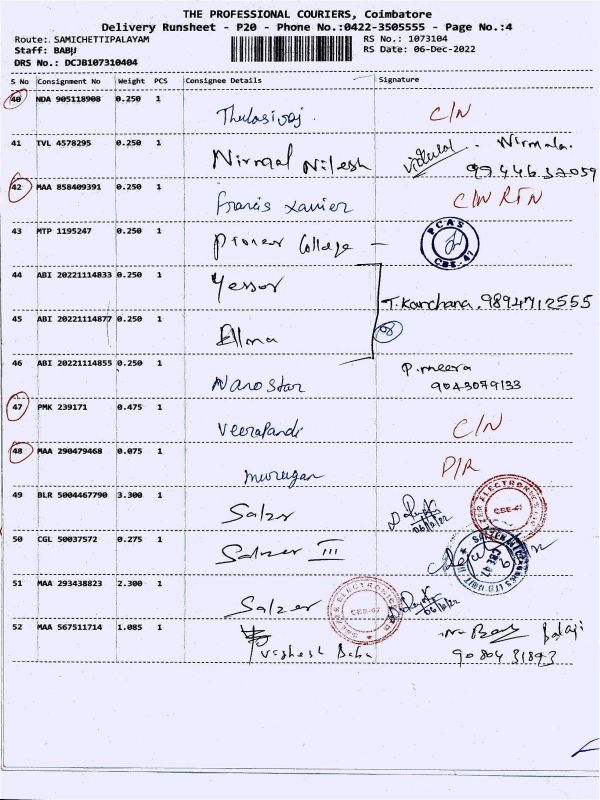 THE PROFESSIONAL COURIERS, Coimbatore
Delivery Runsheet - P20 - Phone No.:0422-3505555 - Page No.:4
Route:. SAMICHETTIPALAYAM RS No.: 1073104
Staff: BABU RS Date: 06-Dec-2022
DRS No.: DCJB107310404
S No Consignment No Weight PCS Consignee Details Signature
40 NDA 905118908 0.250 1 Thulasiraj. C/N
41 TVL 4578295 0.250 1 Nirmal Nilesh Nirmala.
42 MAA 858409391 0.250 1 Francis Xavier C/N RTN
43 MTP 1195247 0.250 1 Pioneer College - PCAS CBE-47
44 ABI 20221114833 0.250 1 Yessor T. Kanchana. 9894712555
45 ABI 20221114877 0.250 1 Ellma
46 ABI 20221114855 0.250 1 Nanostar P. meera
9043079133
47 PMK 239171 0.475 1 Veerapandi C/N
48 MAA 290479468 0.075 1 murugan D/R
49 BLR 5004467790 3.300 1 Salzer 06/12/22 SALZER ELECTRONICS LTD CBE-47
50 CGL 50037572 0.275 1 Salzer III
51 MAA 293438823 2.300 1 Salzer SALZER ELECTRONICS LTD CBE-47 06/12/22
52 MAA 567511714 1.085 1 Vighesh Babu Balaji
9080431893